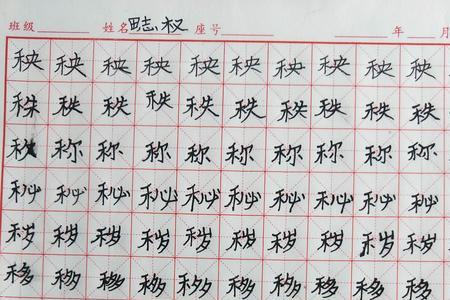 班级 姓名 志权 座号 年 月
秧 秧 秧 秧 秧 秧 秧 秧 秧 秧
秩 秩 秩 秩 秩 秩 秩 秩 秩 秩
称 称 称 称 称 称 称 称 称 称
秘 秘 秘 秘 秘 秘 秘 秘 秘 秘
秽 秽 秽 秽 秽 秽 秽 秽 秽 秽
移 移 移 移 移 移 移 移 移 移